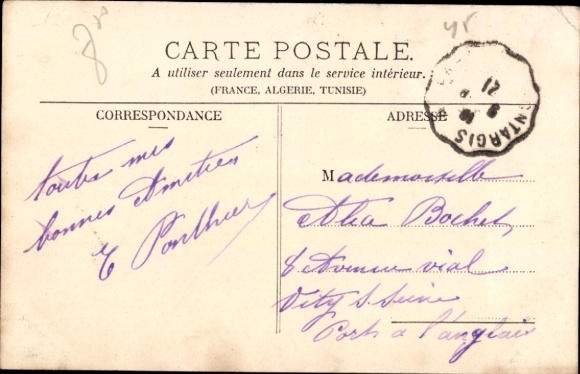 CARTE POSTALE.
A utiliser seulement dans le service intérieur.
(FRANCE, ALGERIE, TUNISIE)
CORRESPONDANCE
ADRESSE
NTARGIS
21
9
toutes mes
bonnes Amitiés
Mademoiselle
Bochet
Avenue vial
Vitry s. Seine
Port à l'anglais